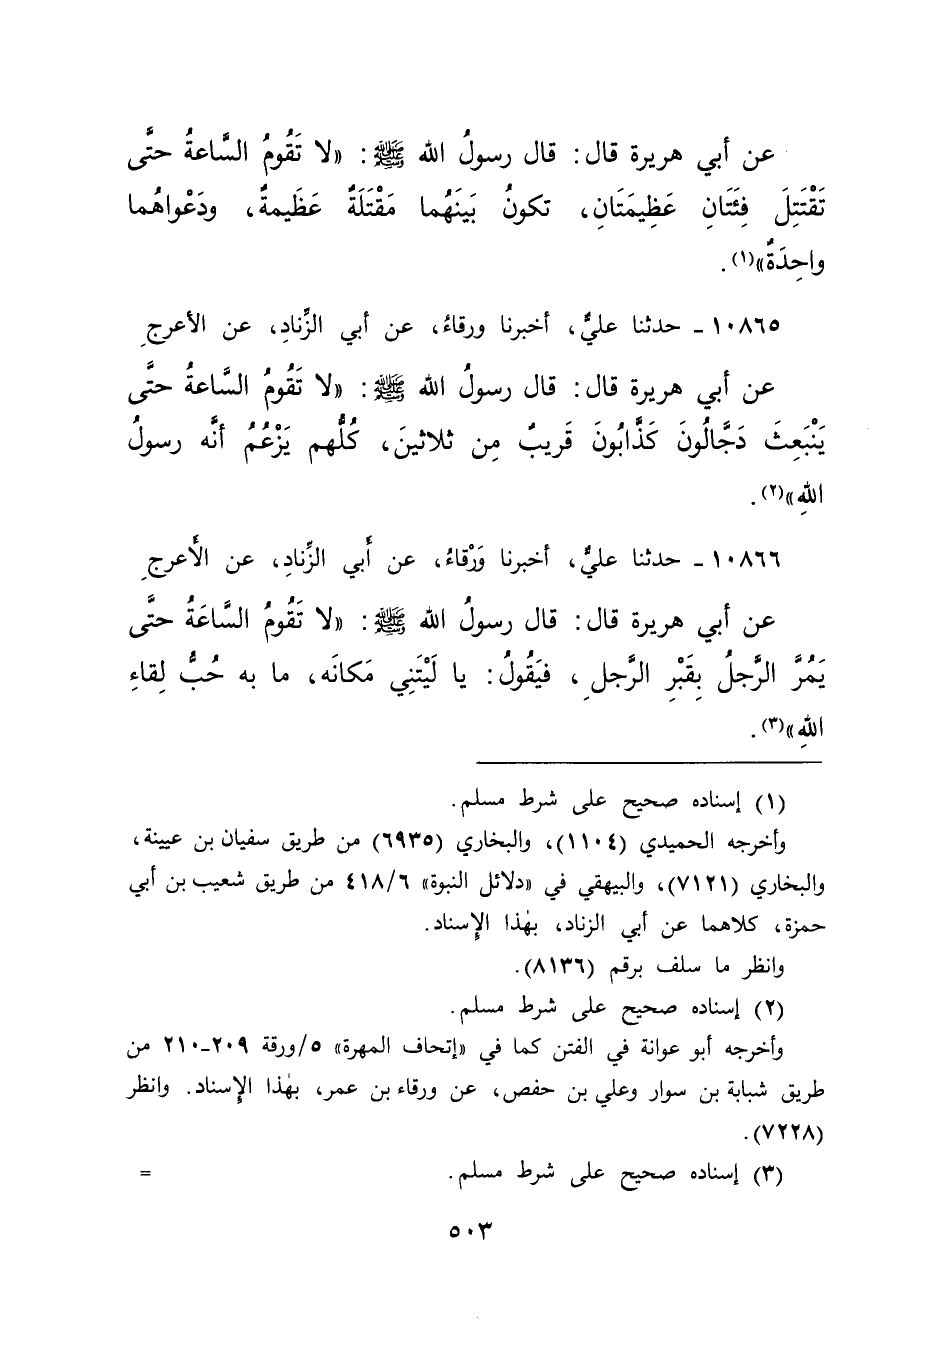 عن أبي هريرة قال: قال رسولُ الله ﷺ: «لا تَقُومُ السَّاعةُ حتَّى
تَقْتَتِلَ فِئَتَانِ عَظِيمَتَانِ، تكونُ بَينَهُما مَقْتَلَةٌ عَظَيمةٌ، ودَعْواهُما
واحِدَةٌ»(١).
١٠٨٦٥ ـ حدثنا عليٌّ، أخبرنا ورقاءُ، عن أبي الزِّنادِ، عن الأعرجِ
عن أبي هريرة قال: قال رسولُ الله ﷺ: «لا تَقُومُ السَّاعةُ حتَّى
يَنْبَعِثَ دَجَّالُونَ كَذَّابُونَ قَريبٌ مِن ثلاثينَ، كُلُّهم يَزْعُمُ أنَّه رسولُ
اللهِ»(٢).
١٠٨٦٦ ـ حدثنا عليٌّ، أخبرنا وَرْقاءُ، عن أَبي الزِّنادِ، عن الأَعرجِ
عن أبي هريرة قال: قال رسولُ الله ﷺ: «لا تَقُومُ السَّاعَةُ حتَّى
يَمُرَّ الرَّجلُ بِقَبْرِ الرَّجلِ، فيَقُولُ: يا لَيْتَنِي مَكانَه، ما به حُبُّ لِقاءِ
اللهِ»(٣).
(١) إسناده صحيح على شرط مسلم.
وأخرجه الحميدي (١١٠٤)، والبخاري (٦٩٣٥) من طريق سفيان بن عيينة،
والبخاري (٧١٢١)، والبيهقي في «دلائل النبوة» ٤١٨/٦ من طريق شعيب بن أبي
حمزة، كلاهما عن أبي الزناد، بهٰذا الإسناد.
وانظر ما سلف برقم (٨١٣٦).
(٢) إسناده صحيح على شرط مسلم.
وأخرجه أبو عوانة في الفتن كما في «إتحاف المهرة» ٥/ورقة ٢٠٩ـ٢١٠ من
طريق شبابة بن سوار وعلي بن حفص، عن ورقاء بن عمر، بهٰذا الإسناد. وانظر
(٧٢٢٨).
(٣) إسناده صحيح على شرط مسلم. =
٥٠٣